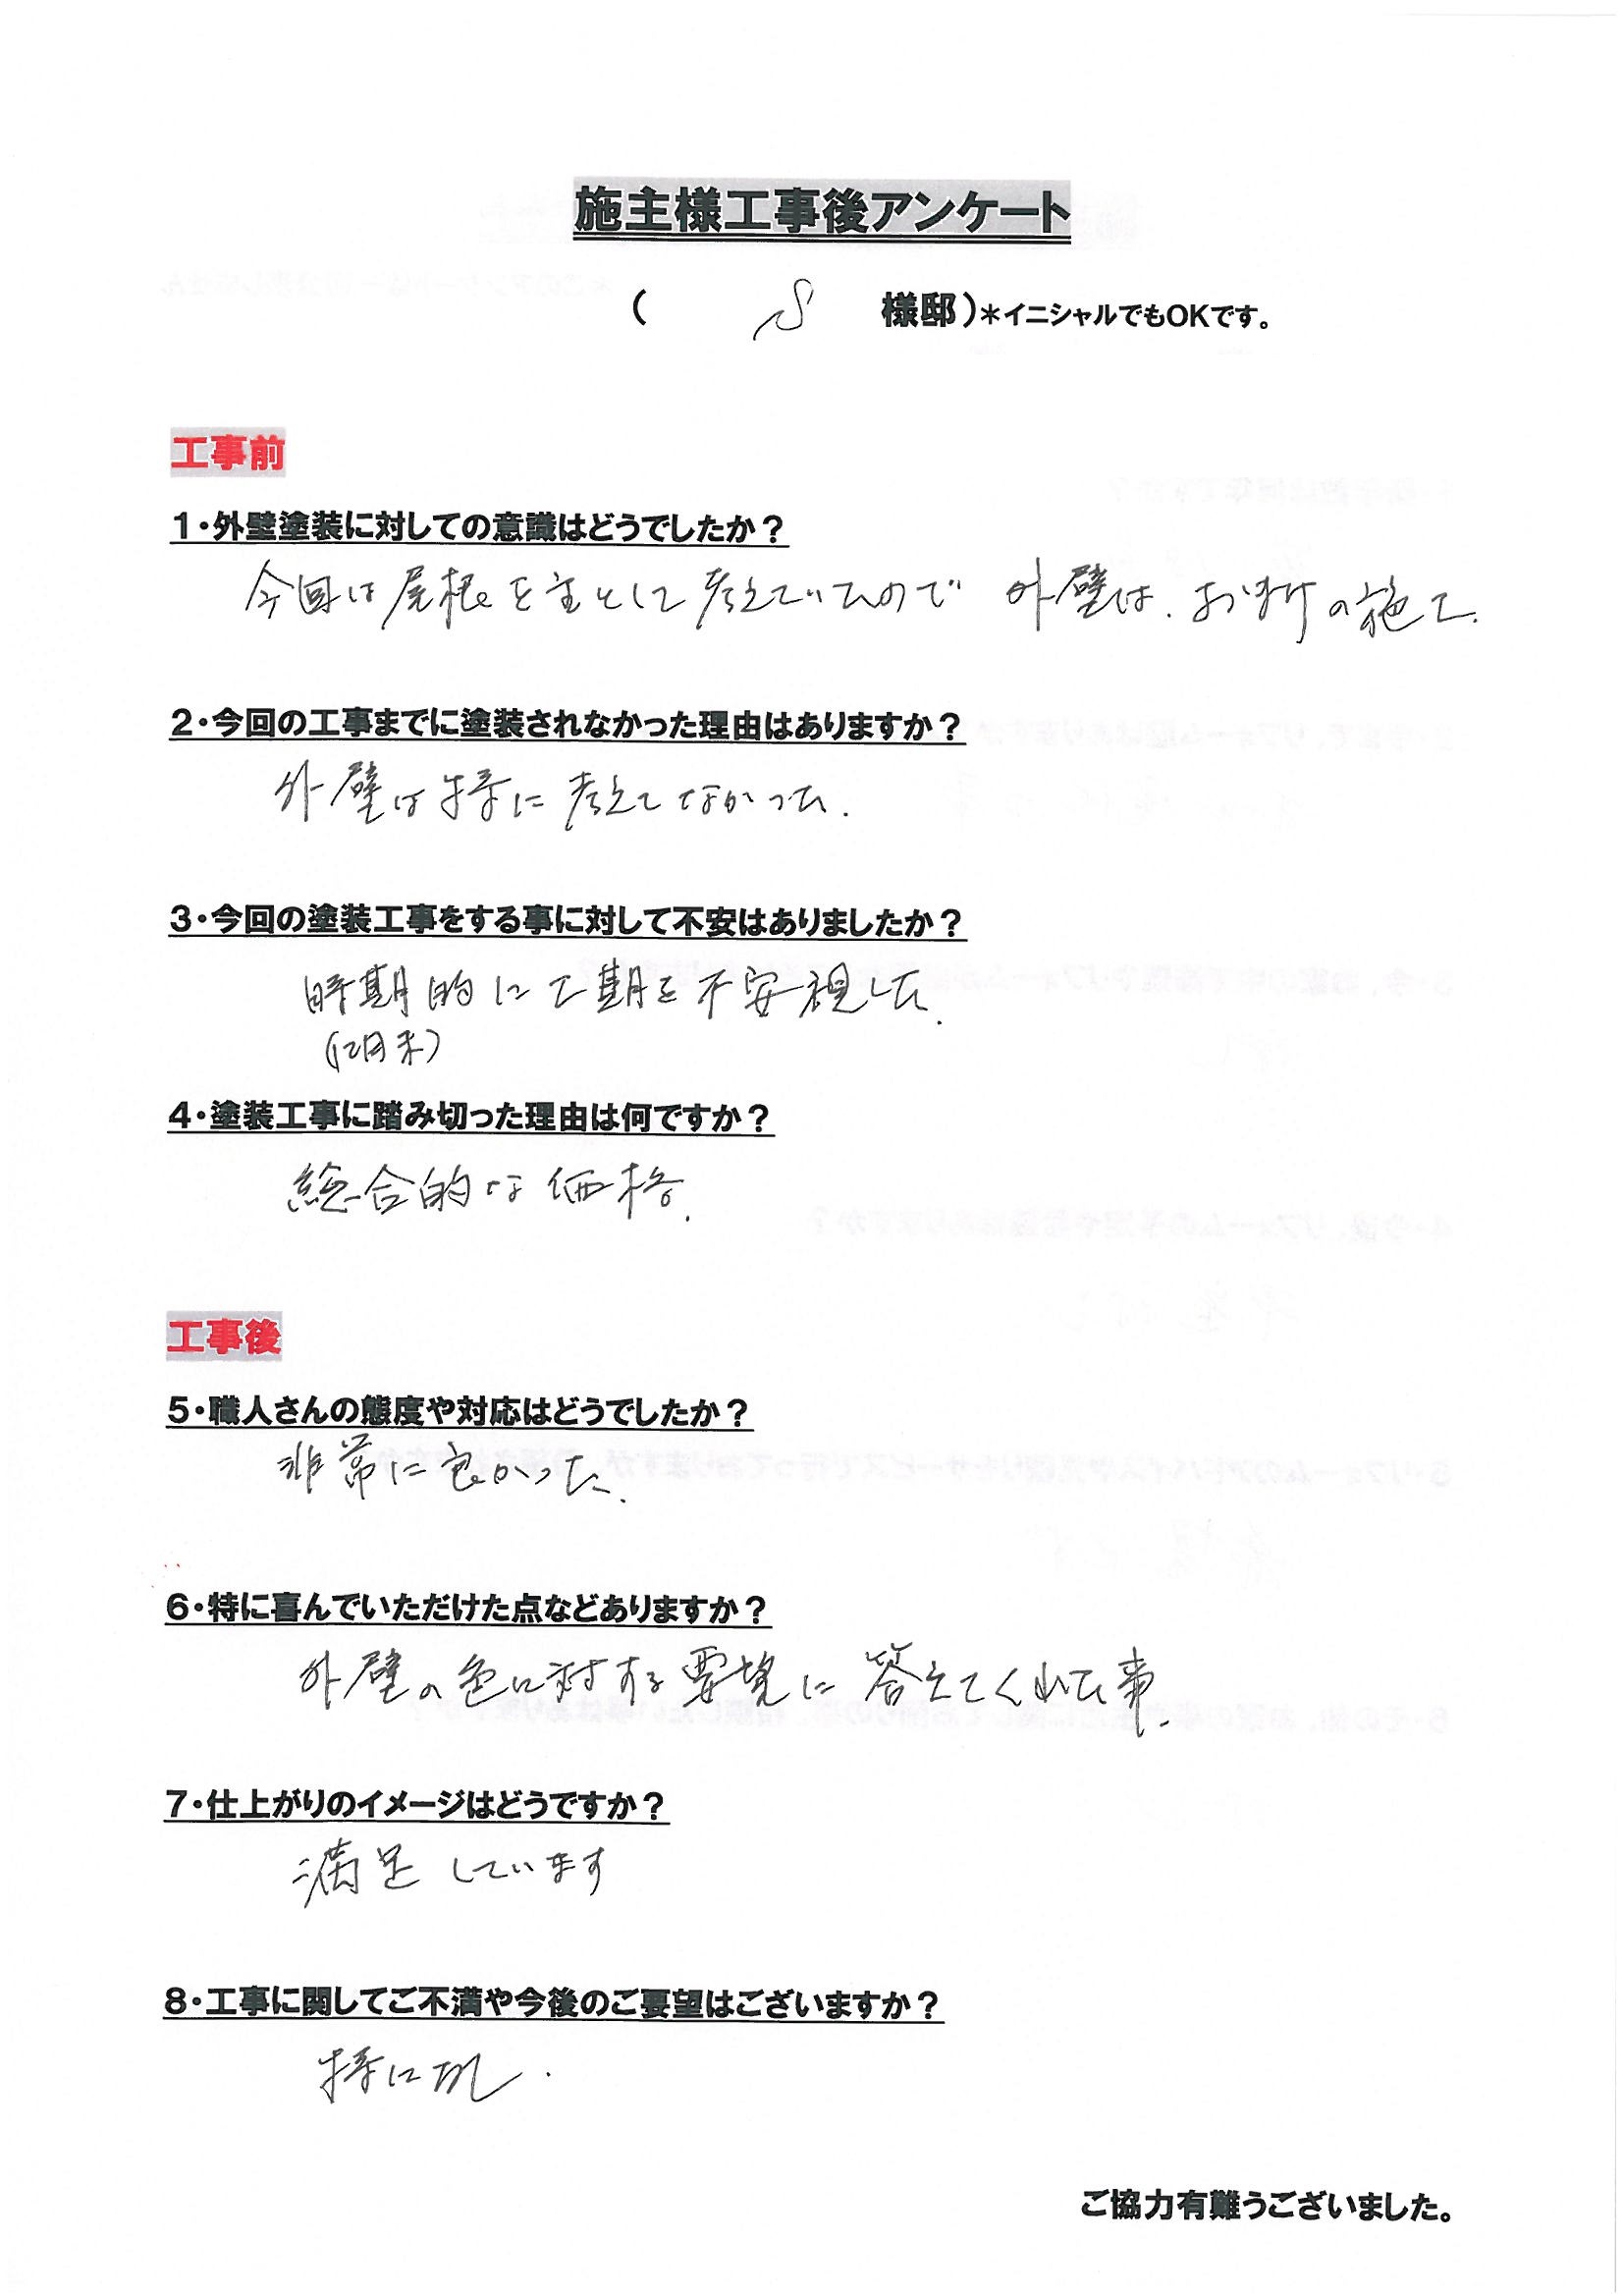 施主様工事後アンケート
( S 様邸)*イニシャルでもOKです。
工事前
1・外壁塗装に対しての意識はどうでしたか?
今回は屋根を主として考えていたので 外壁は、お まけの施工.
2・今回の工事までに塗装されなかった理由はありますか?
外壁は特に考えてなかった.
3・今回の塗装工事をする事に対して不安はありましたか?
時期的に工期を不安視した.
(12月末)
4・塗装工事に踏み切った理由は何ですか?
総合的な価格.
工事後
5・職人さんの態度や対応はどうでしたか?
非常に良かった.
6・特に喜んでいただけた点などありますか?
外壁の色に対する要望に答えてくれた事.
7・仕上がりのイメージはどうですか?
満足しています
8・工事に関してご不満や今後のご要望はございますか?
特に無し.
ご協力有難うございました。